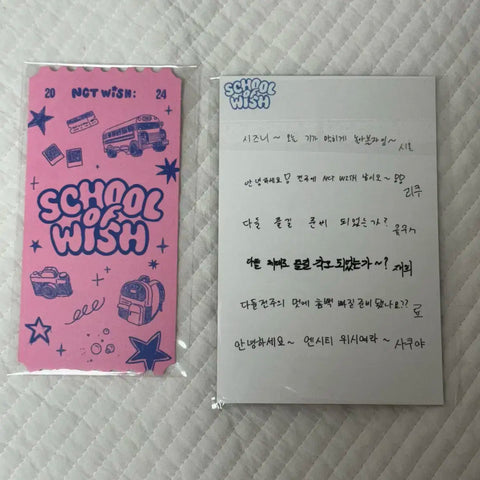 20 NCT WISH: 24
SCHOOL
OF
WISH
SCHOOL
OF
WISH
시즈니~ 오늘 기가 막히게 놀아보자잉~ 시온
안녕하세요 전주에 NCT WISH 리쿠
다들 즐길 준비 되었는가? 유우시
다들 즐길 각오 되었는가~? 재희
다들전주의 멋에 흠뻑 빠질 준비 됐나요?? 료
안녕하세요~ 엔시티 위시여라~ 사쿠야